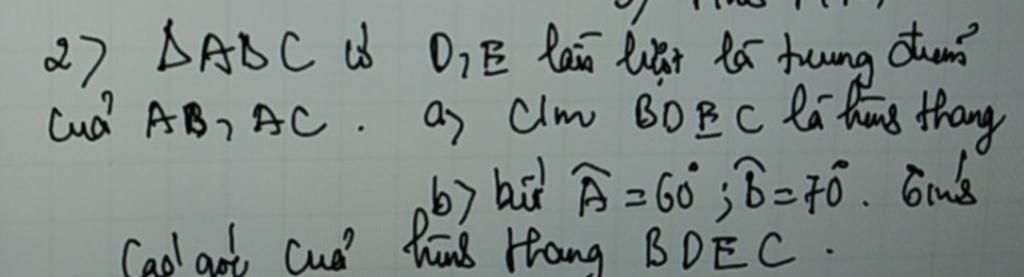 2) ΔABC có D, E lần lượt là trung điểm
của AB, AC. a) C/m BDEC là hình thang
b) biết Â = 60°; B̂ = 70°. Tính
các góc của hình thang BDEC.